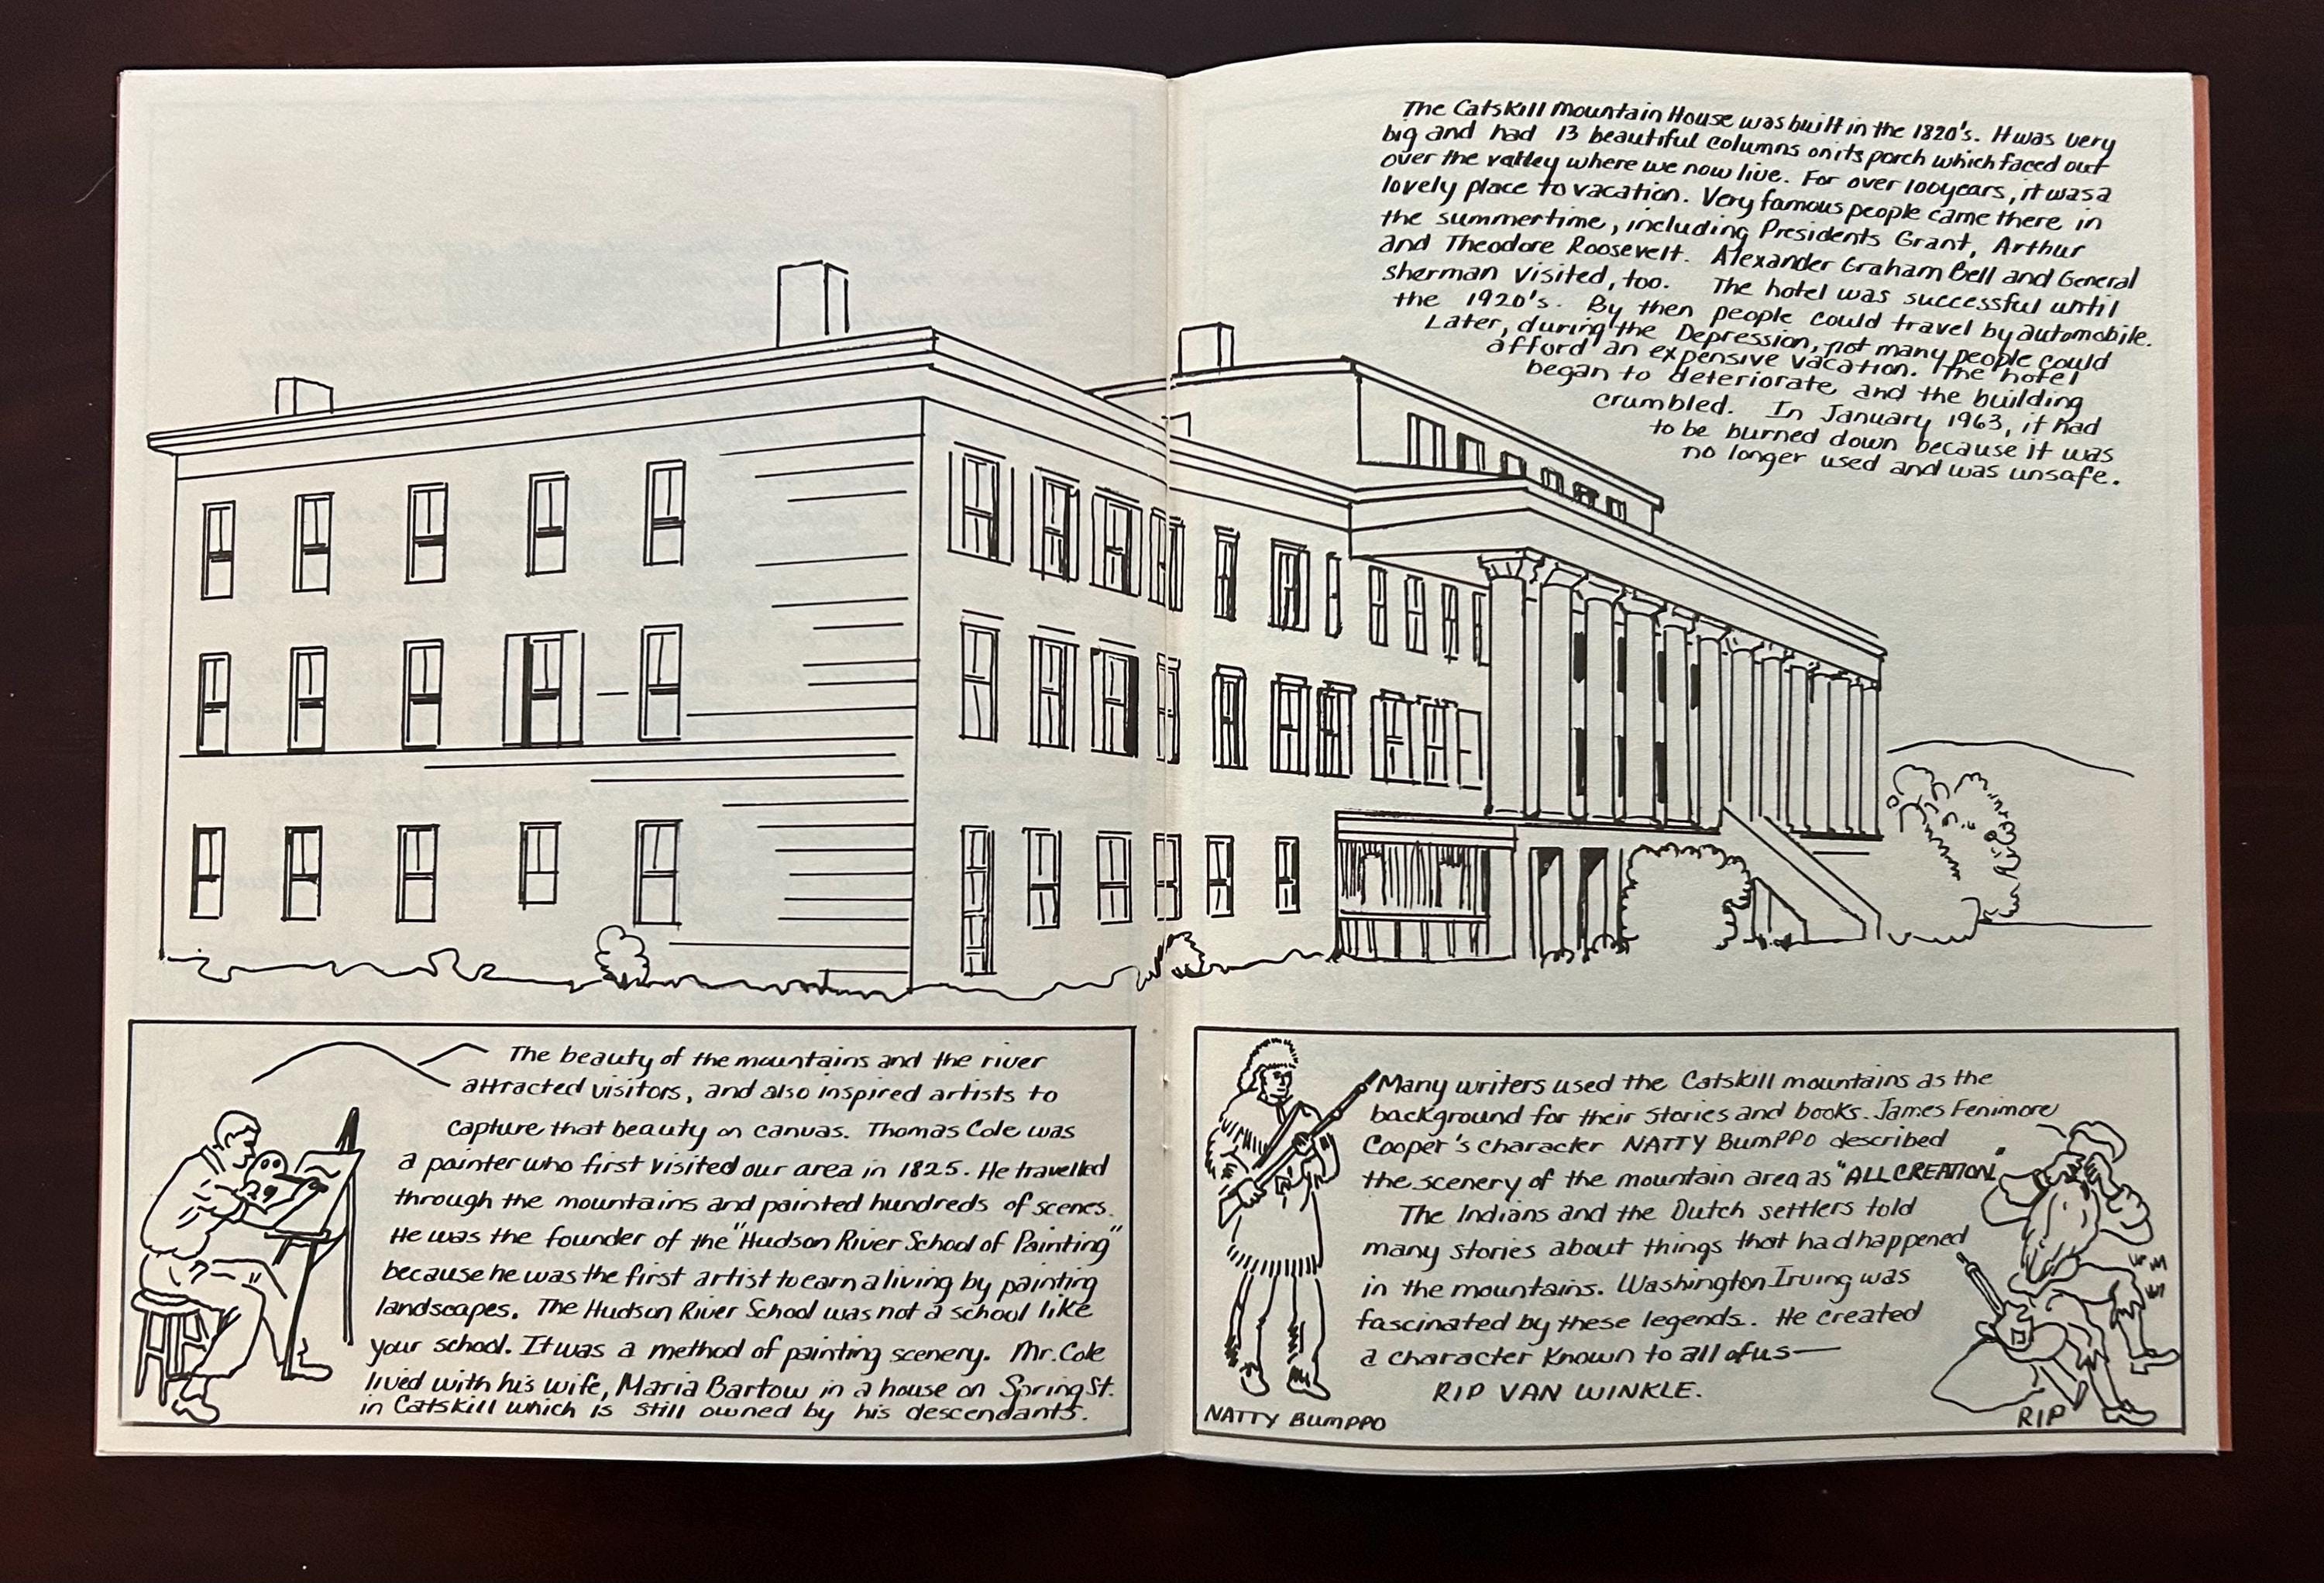 The Catskill Mountain House was built in the 1820's. It was very
big and had 13 beautiful columns on its porch which faced out
over the valley where we now live. For over 100 years, it was a
lovely place to vacation. Very famous people came there in
the summertime, including Presidents Grant, Arthur
and Theodore Roosevelt. Alexander Graham Bell and General
Sherman visited, too. The hotel was successful until
the 1920's. By then people could travel by automobile.
Later, during the Depression, not many people could
afford an expensive vacation. The hotel
began to deteriorate, and the building
crumbled. In January 1963, it had
to be burned down because it was
no longer used and was unsafe.
The beauty of the mountains and the river
attracted visitors, and also inspired artists to
capture that beauty on canvas. Thomas Cole was
a painter who first visited our area in 1825. He travelled
through the mountains and painted hundreds of scenes.
He was the founder of the "Hudson River School of Painting"
because he was the first artist to earn a living by painting
landscapes. The Hudson River School was not a school like
your school. It was a method of painting scenery. Mr. Cole
lived with his wife, Maria Bartow in a house on Spring St.
in Catskill which is still owned by his descendants.
Many writers used the Catskill mountains as the
background for their stories and books. James Fenimore
Cooper's character NATTY BUMPPO described
the scenery of the mountain area as "ALL CREATION."
The Indians and the Dutch settlers told
many stories about things that had happened
in the mountains. Washington Irving was
fascinated by these legends. He created
a character known to all of us—
RIP VAN WINKLE.
NATTY BUMPPO
RIP